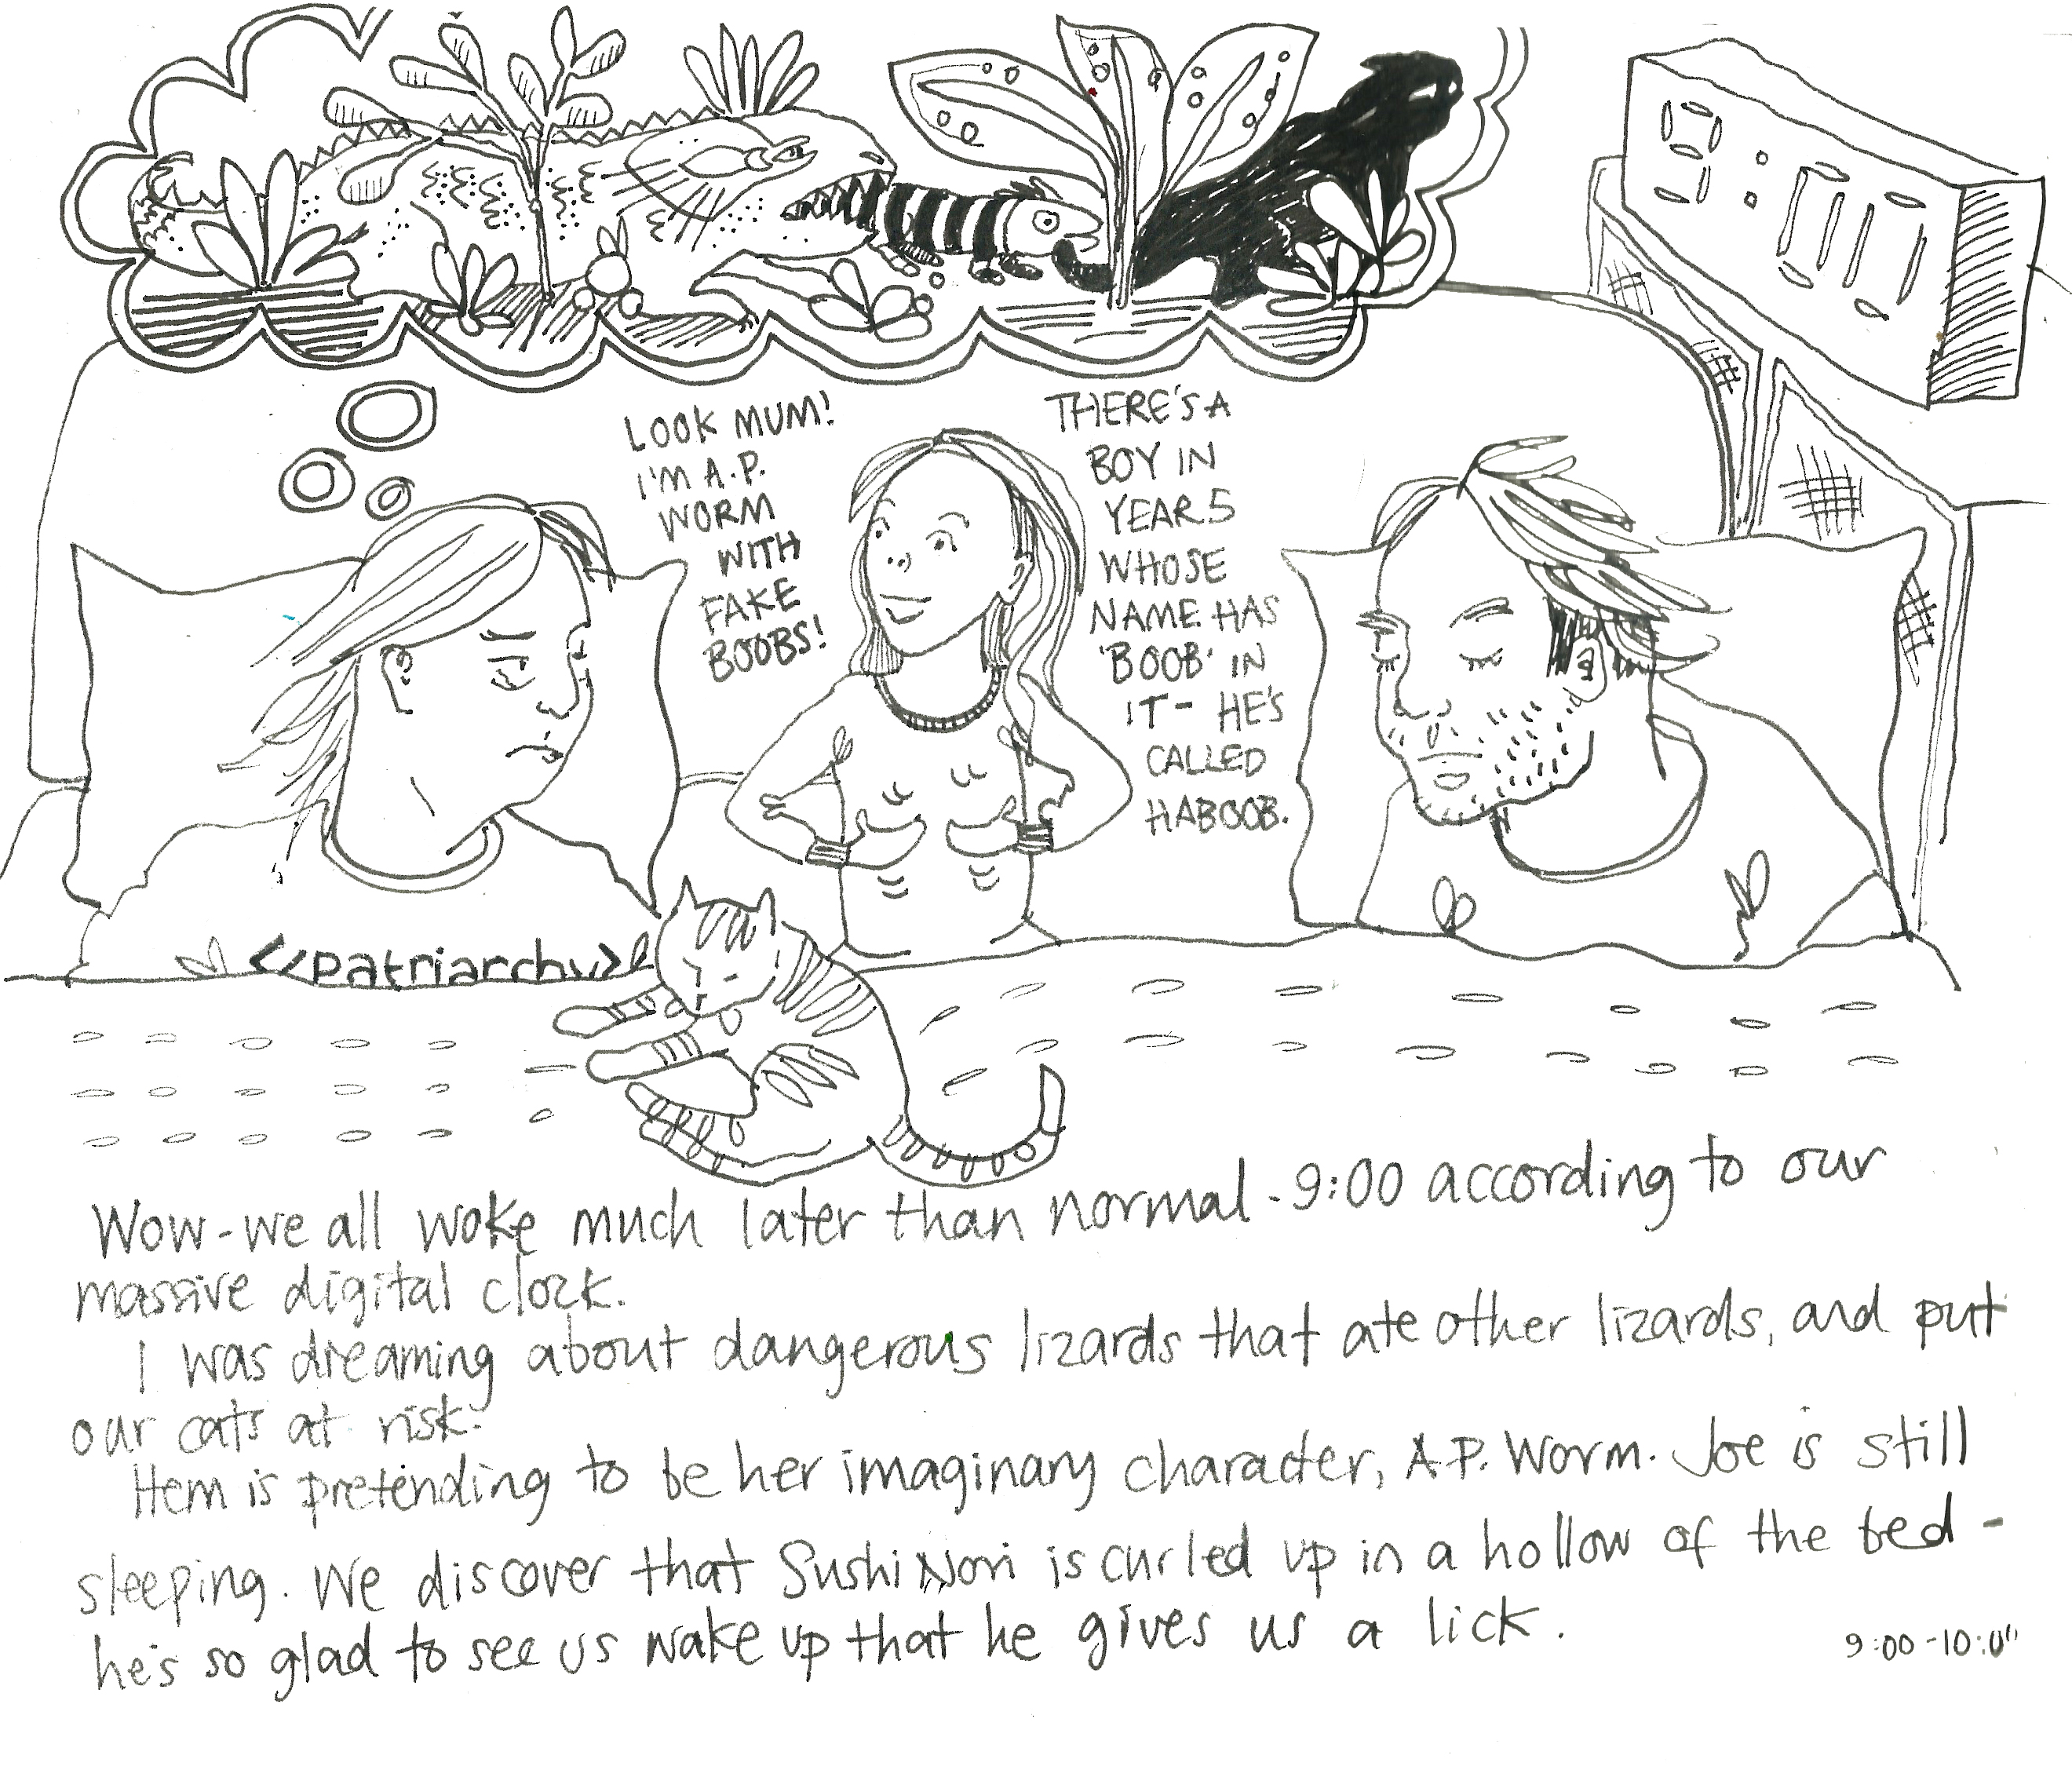 9:00
LOOK MUM!
I'M A.P.
WORM
WITH
FAKE
BOOBS!
THERE'S A
BOY IN
YEAR 5
WHOSE
NAME HAS
'BOOB' IN
IT - HE'S
CALLED
HABOOB.
</patriarchy>
Wow - we all woke much later than normal - 9:00 according to our
massive digital clock.
I was dreaming about dangerous lizards that ate other lizards, and put
our cats at risk.
Hem is pretending to be her imaginary character, A.P. Worm. Joe is still
sleeping. We discover that Sushi Nori is curled up in a hollow of the bed -
he's so glad to see us wake up that he gives us a lick.
9:00 - 10:00